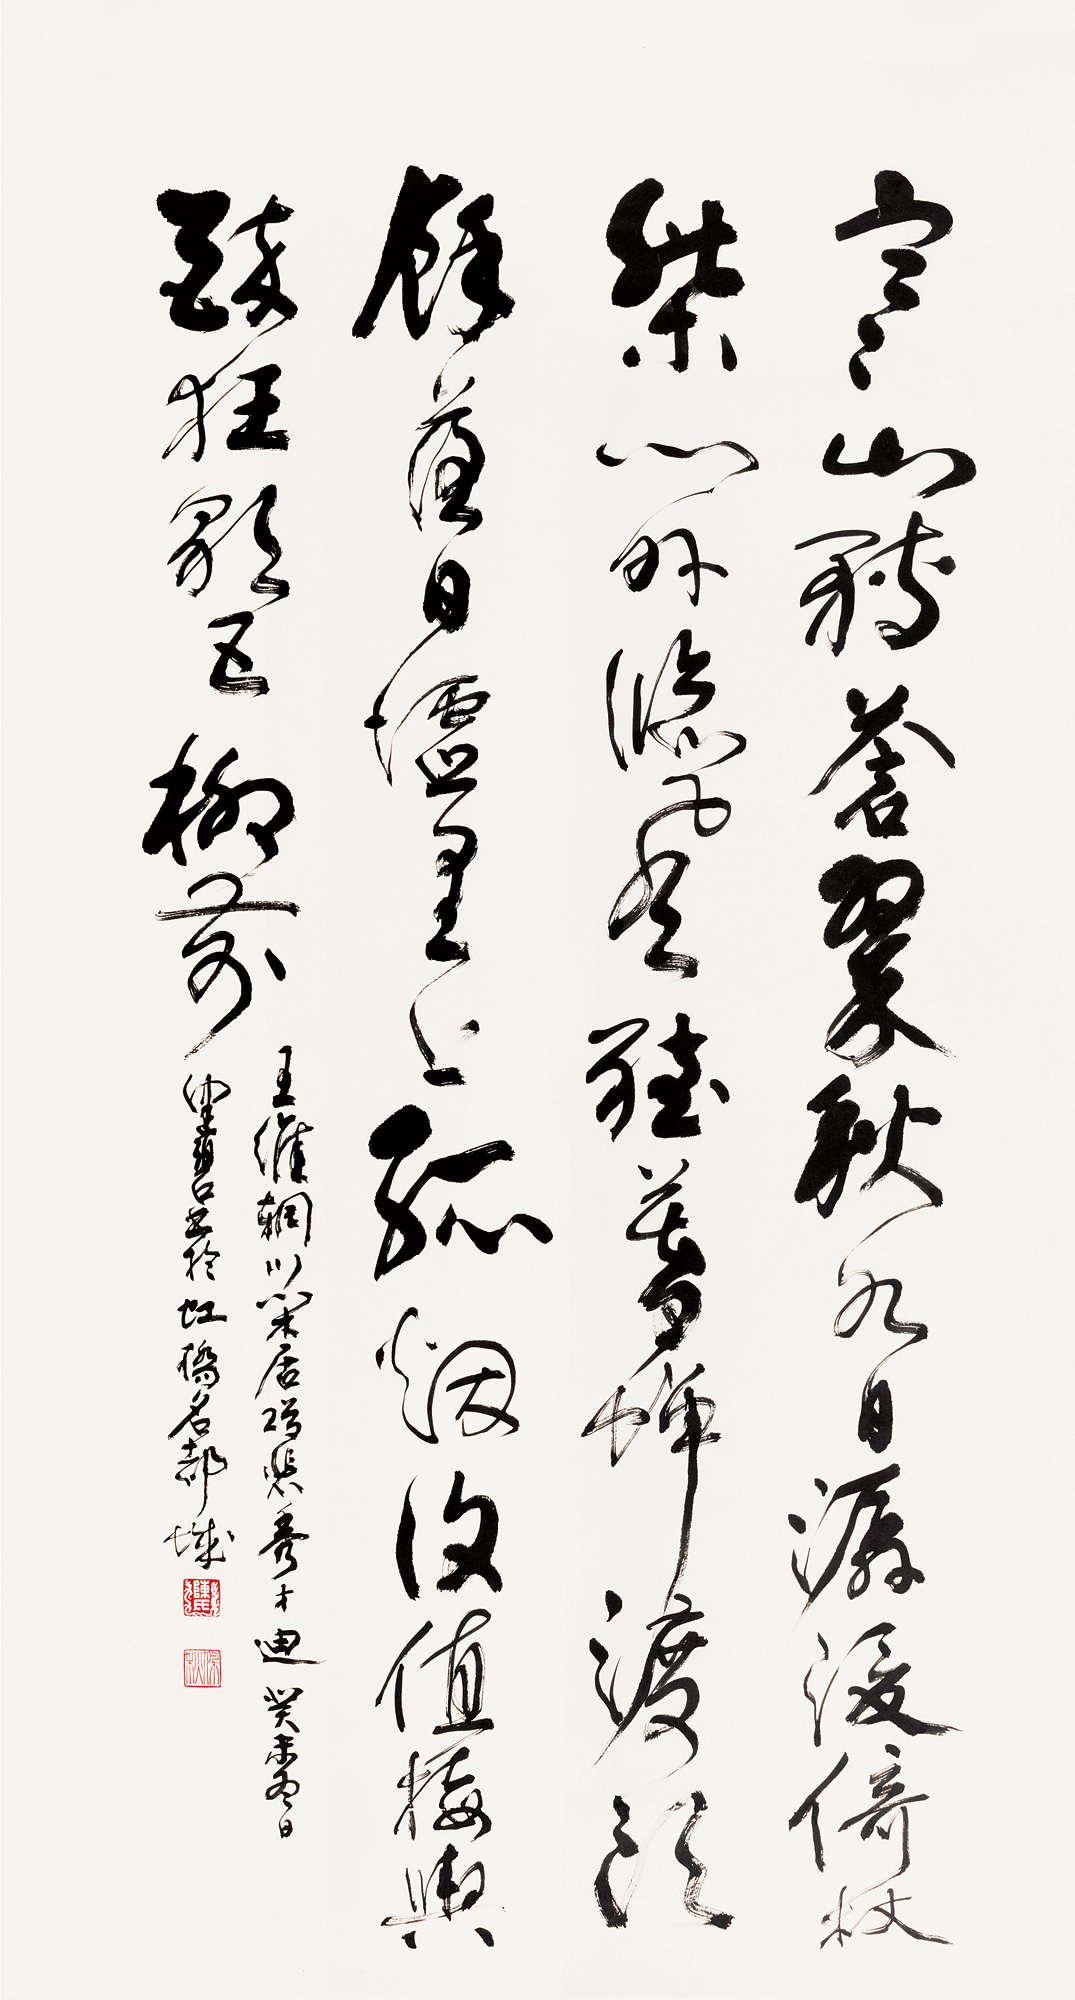 寒山轉蒼翠秋水日潺湲倚杖
柴門外臨風聽暮蟬渡頭
餘落日墟里上孤烟復值接輿
醉狂歌五柳前
王維輞川閑居贈裴秀才迪 癸未冬日
健碧書於虹橋名都城